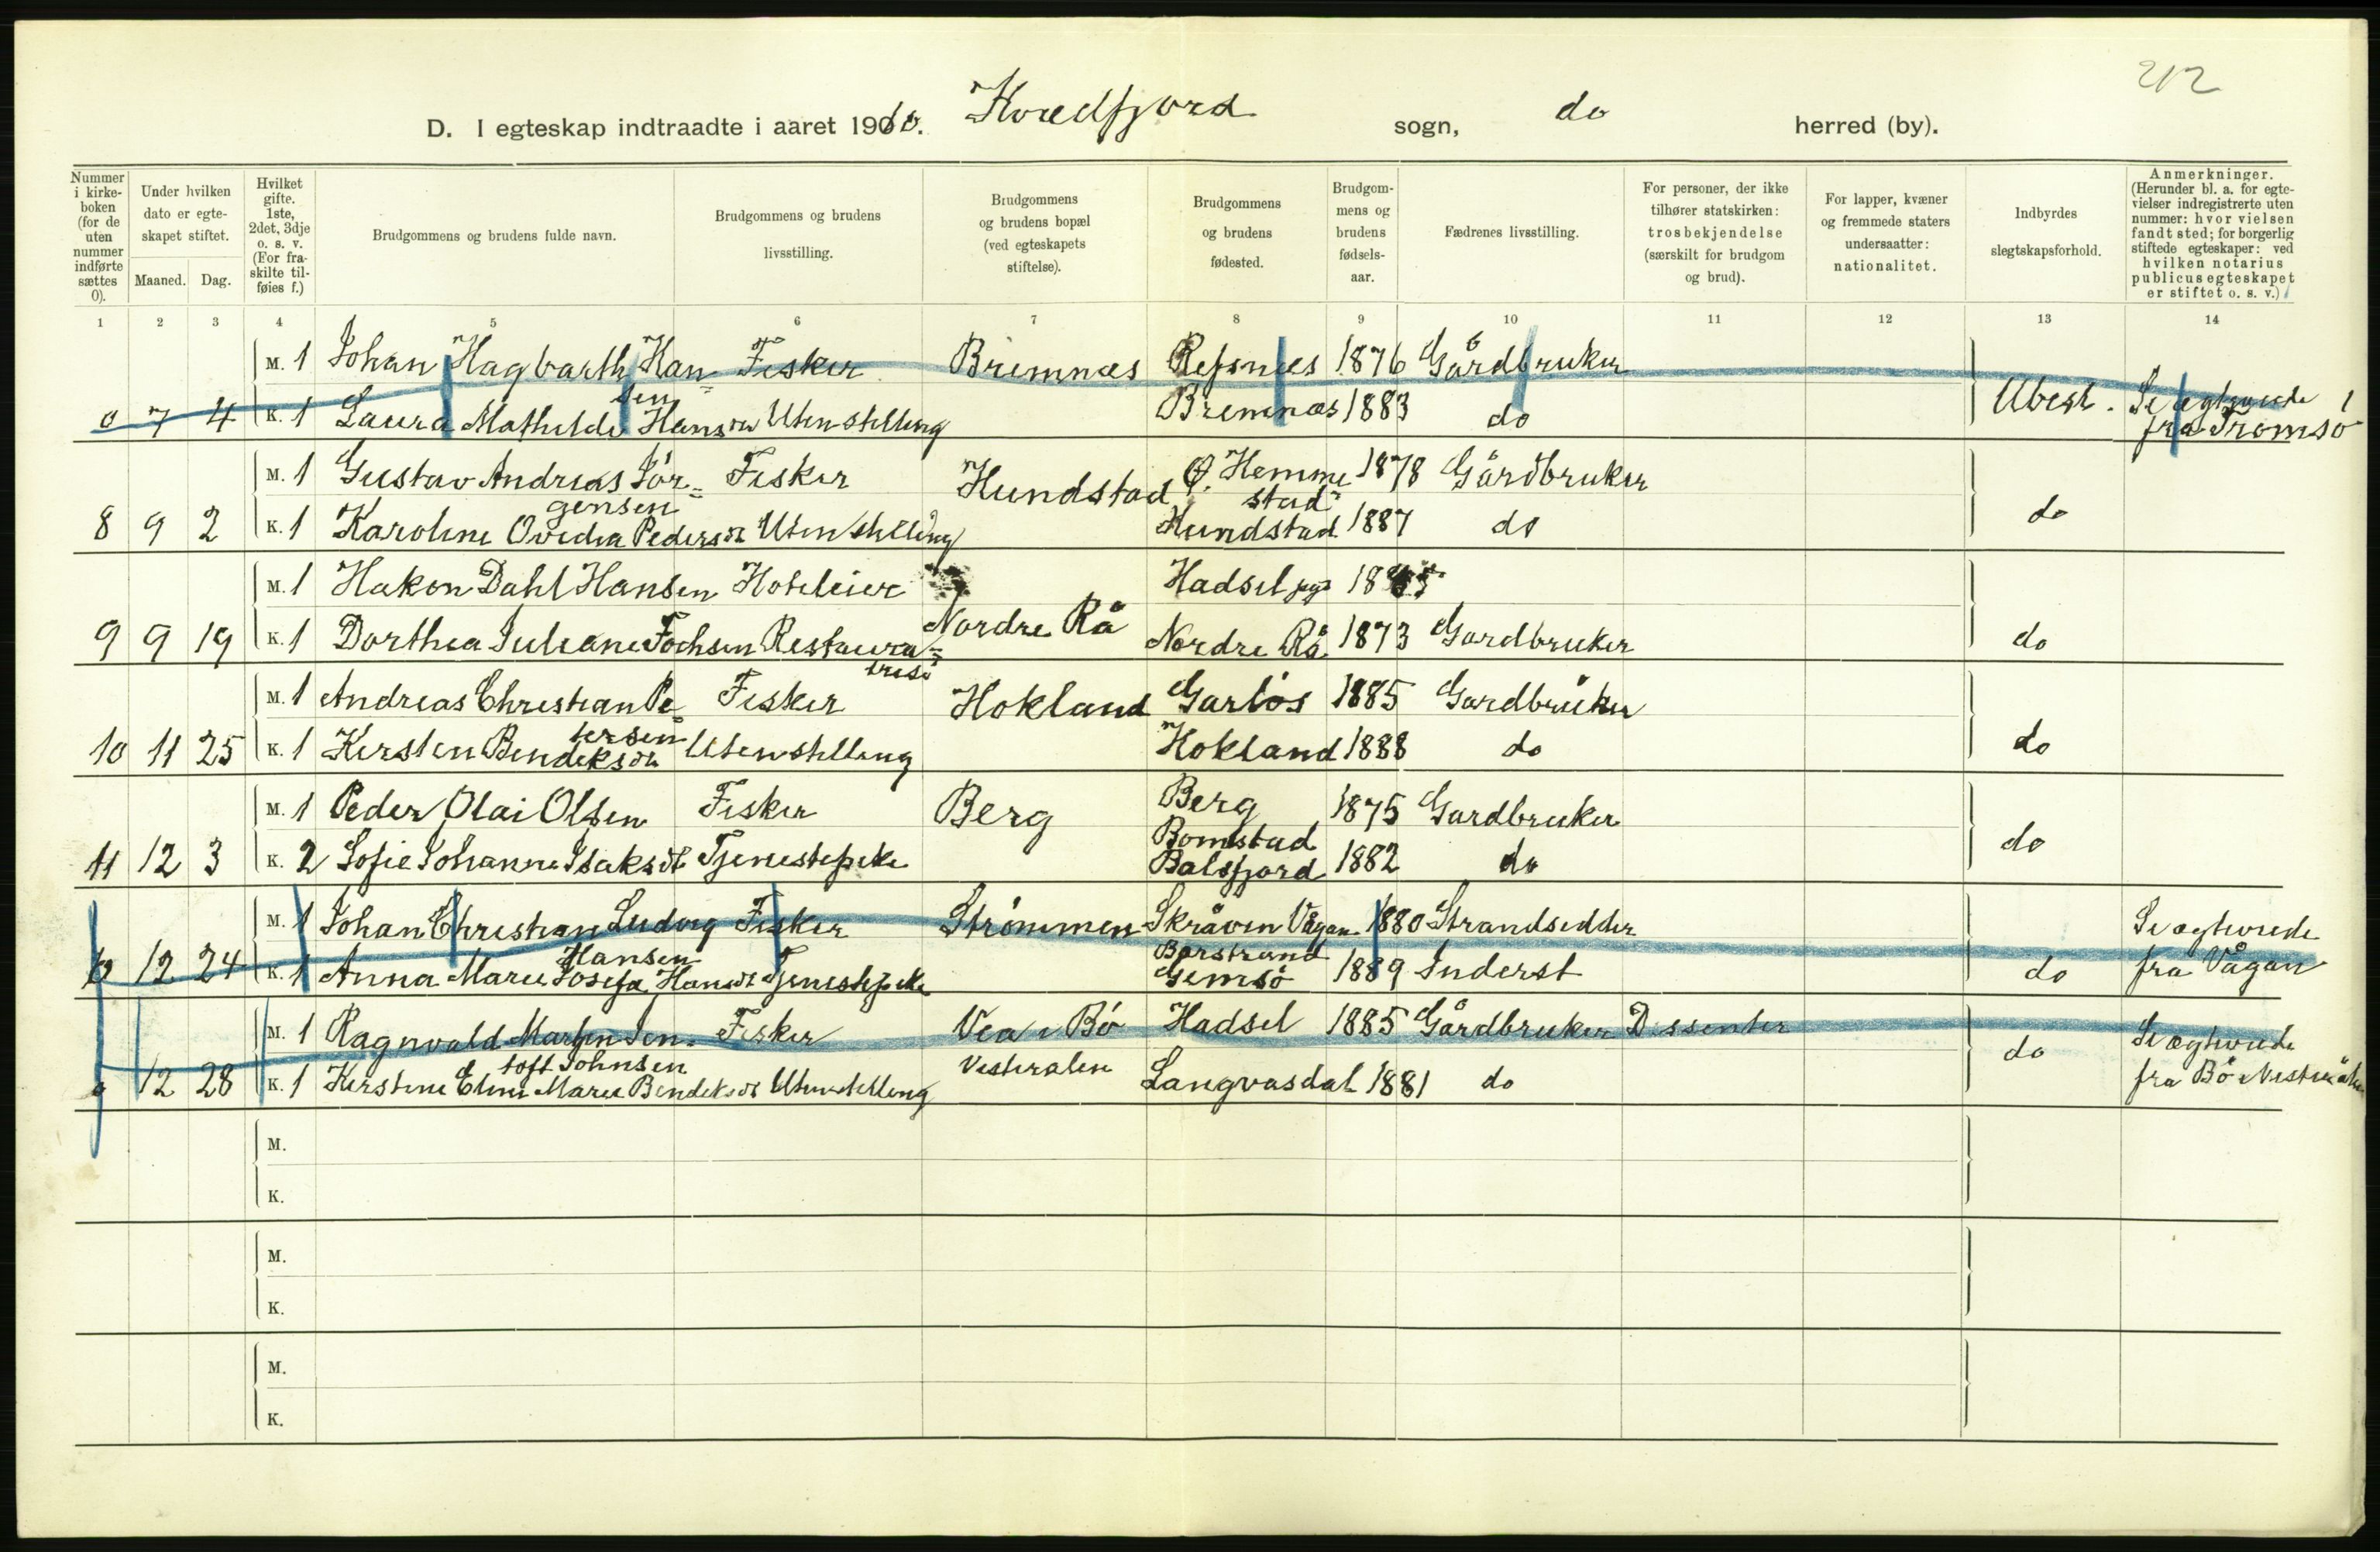 212
D. I egteskap indtraadte i aaret 1910. Kvedfjord sogn, do herred (by).
Nummer i kirkeboken (for de uten nummer indførte sættes 0).
Under hvilken dato er egteskapet stiftet.
Maaned. Dag.
Hvilket gifte. 1ste, 2det, 3dje o. s. v. (For fraskilte tilføies f.)
Brudgommens og brudens fulde navn.
Brudgommens og brudens livsstilling.
Brudgommens og brudens bopæl (ved egteskapets stiftelse).
Brudgommens og brudens fødested.
Brudgommens og brudens fødselsaar.
Fædrenes livsstilling.
For personer, der ikke tilhører statskirken: trosbekjendelse (særskilt for brudgom og brud).
For lapper, kvæner og fremmede staters undersaatter: nationalitet.
Indbyrdes slegtskapsforhold.
Anmerkninger. (Herunder bl. a. for egtevielser indregistrerte uten nummer: hvor vielsen fandt sted; for borgerlig stiftede egteskaper: ved hvilken notarius publicus egteskapet er stiftet o. s. v.)
1 2 3 4 5 6 7 8 9 10 11 12 13 14
M. 1 Johan Hagbarth Hansen Fisker Bremnæs Refsnæs 1876 Gårdbruker
0 7 4 K. 1 Laura Mathilde Hansdr Uten stilling Bremnæs 1883 do Ubesl. Se ægteviede fra Tromsø
M. 1 Gustav Andreas Jörgensen Fisker Hundstad Ø. Hemmestad 1878 Gårdbruker
8 9 2 K. 1 Karoline Ovedia Pedersdt Uten stilling Hundstad 1887 do do
M. 1 Hakon Dahl Hansen Hoteleier Nordre Rå Hadsel
9 9 19 K. 1 Dorthea Juliane Jochsen Restauratrise Nordre Rå 1873 Gardbruker do
M. 1 Andreas Christian Petersen Fisker Hokland Garlös 1885 Gardbruker
10 11 25 K. 1 Kirsten Bendeksdtr Uten stilling Hokland 1888 do do
M. 1 Peder Olai Olsen Fisker Berg Berg 1875 Gardbruker
11 12 3 K. 2 Sofie Johanne Isaksdt Tjenestepike Bomstad Balsfjord 1882 do do
M. 1 Johan Christian Ludvig Hansen Fisker Strömmen Skråven Vågan 1880 Strandsidder
0 12 24 K. 1 Anna Marie Josefa Hansdt Tjenestepike Barstrand Gimsö 1889 Inderst do Se ægteviede fra Vågan
M. 1 Ragnvald Martin Jentoft Johnsen Fisker Vea i Bö Vesteralen Hadsel 1885 Gårdbruker Dissenter
0 12 28 K. 1 Kirstine Eline Marie Bendeksdt Uten stilling Langvasdal 1881 do do Se ægteviede fra Bö i Vesterålen
M.
K.
M.
K.
M.
K.